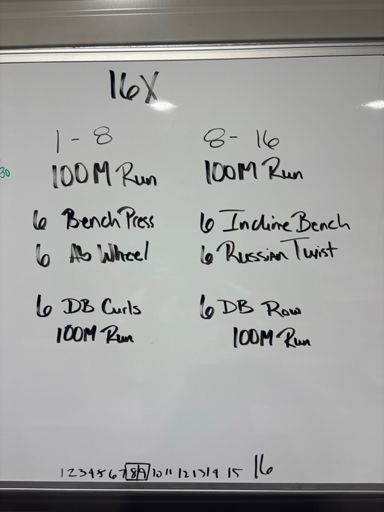 16X
1-8
100M Run
6 Bench Press
6 Ab Wheel
6 DB Curls
100M Run
8-16
100M Run
6 Incline Bench
6 Russian Twist
6 DB Row
100M Run
30
1 2 3 4 5 6 7 8 9 10 11 12 13 14 15 16